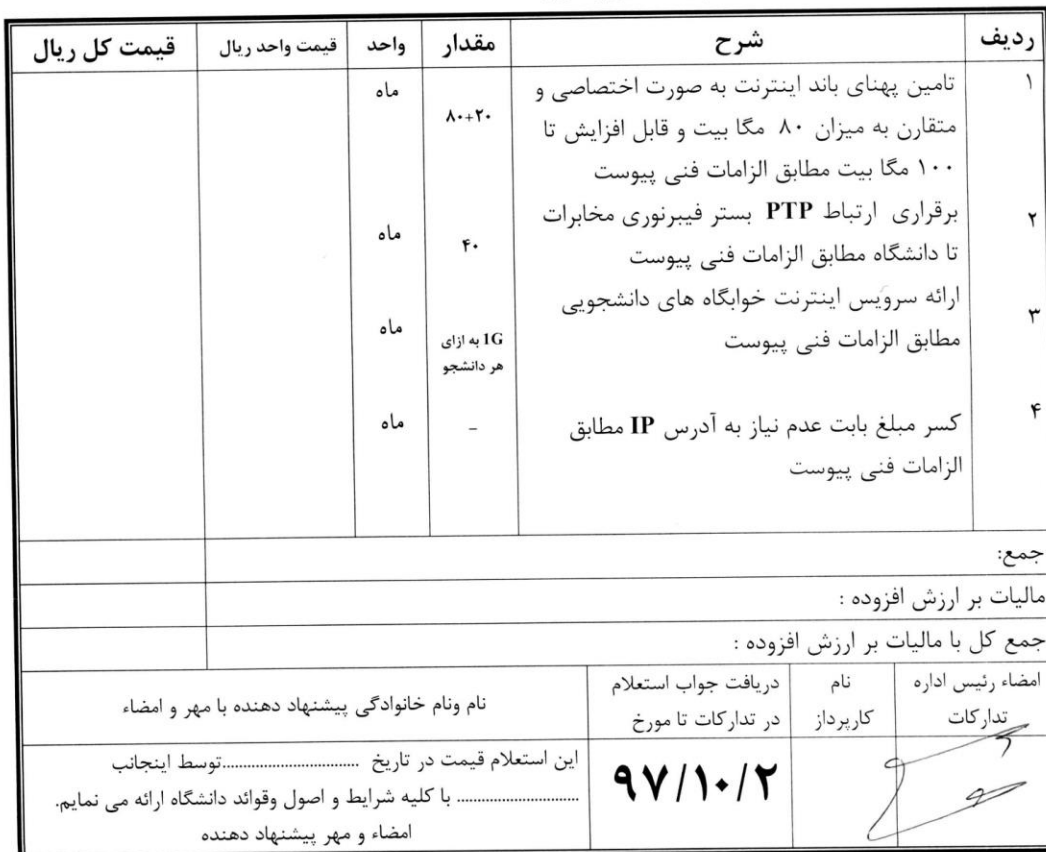 ردیف شرح مقدار واحد قیمت واحد ریال قیمت کل ریال
۱ تامین پهنای باند اینترنت به صورت اختصاصی و ماه
متقارن به میزان ۸۰ مگا بیت و قابل افزایش تا ۸۰+۲۰
۱۰۰ مگا بیت مطابق الزامات فنی پیوست
۲ برقراری ارتباط PTP بستر فیبرنوری مخابرات
تا دانشگاه مطابق الزامات فنی پیوست ۴۰ ماه
۳ ارائه سرویس اینترنت خوابگاه های دانشجویی
مطابق الزامات فنی پیوست 1G به ازای ماه
هر دانشجو
۴ کسر مبلغ بابت عدم نیاز به آدرس IP مطابق – ماه
الزامات فنی پیوست
جمع:
مالیات بر ارزش افزوده :
جمع کل با مالیات بر ارزش افزوده :
امضاء رئیس اداره
تدارکات
نام
کارپرداز
دریافت جواب استعلام
در تدارکات تا مورخ
نام ونام خانوادگی پیشنهاد دهنده با مهر و امضاء
۹۷/۱۰/۲
این استعلام قیمت در تاریخ ................................توسط اینجانب
............................. با کلیه شرایط و اصول وقوائد دانشگاه ارائه می نمایم.
امضاء و مهر پیشنهاد دهنده